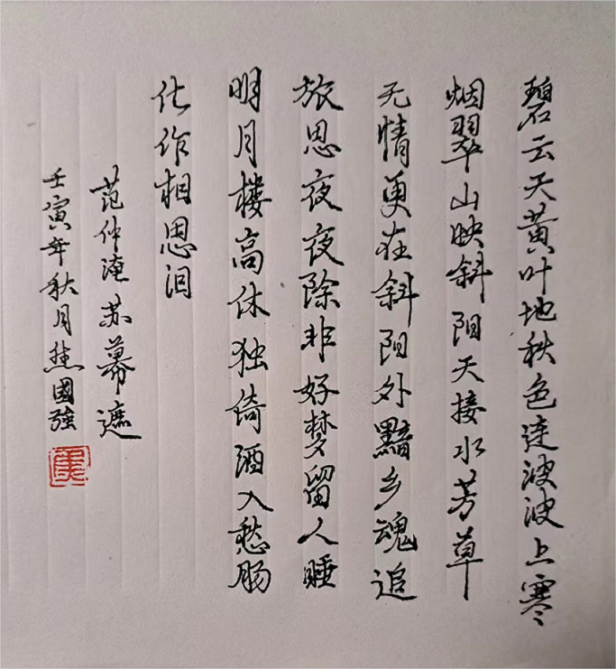 碧云天黄叶地秋色连波波上寒
烟翠山映斜阳天接水芳草
无情更在斜阳外黯乡魂追
旅思夜夜除非好梦留人睡
明月楼高休独倚酒入愁肠
化作相思泪
范仲淹苏幕遮
壬寅年秋月國強